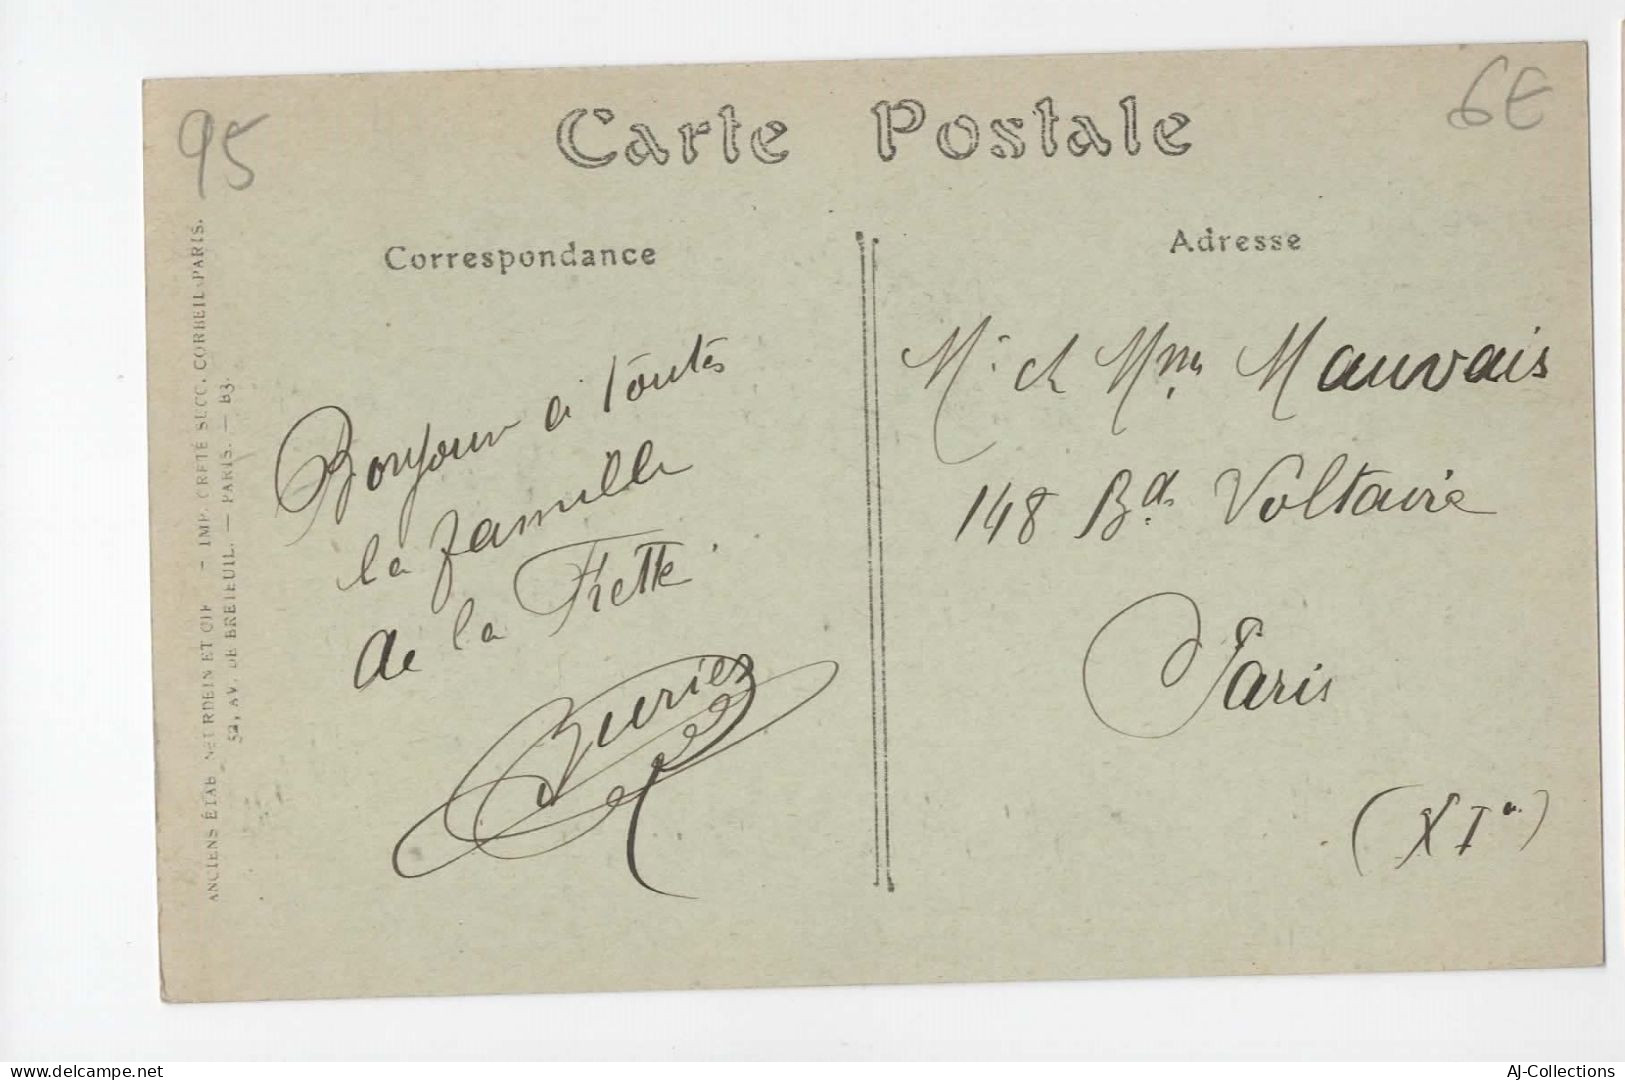 95
6€
Carte Postale
Correspondance
Adresse
Bonjour a toutes
la famille
de la Frette.
Mr et Mme Mauvais
148 Bd. Voltaire
Paris
(XIe)
ANCIENS ÉTAB. NEURDEIN ET CIE — IMP. CRÉTÉ SUCC. CORBEIL-PARIS.
52, AV. DE BRETEUIL. — PARIS. — B3.
delcampe.net
AJ-Collections